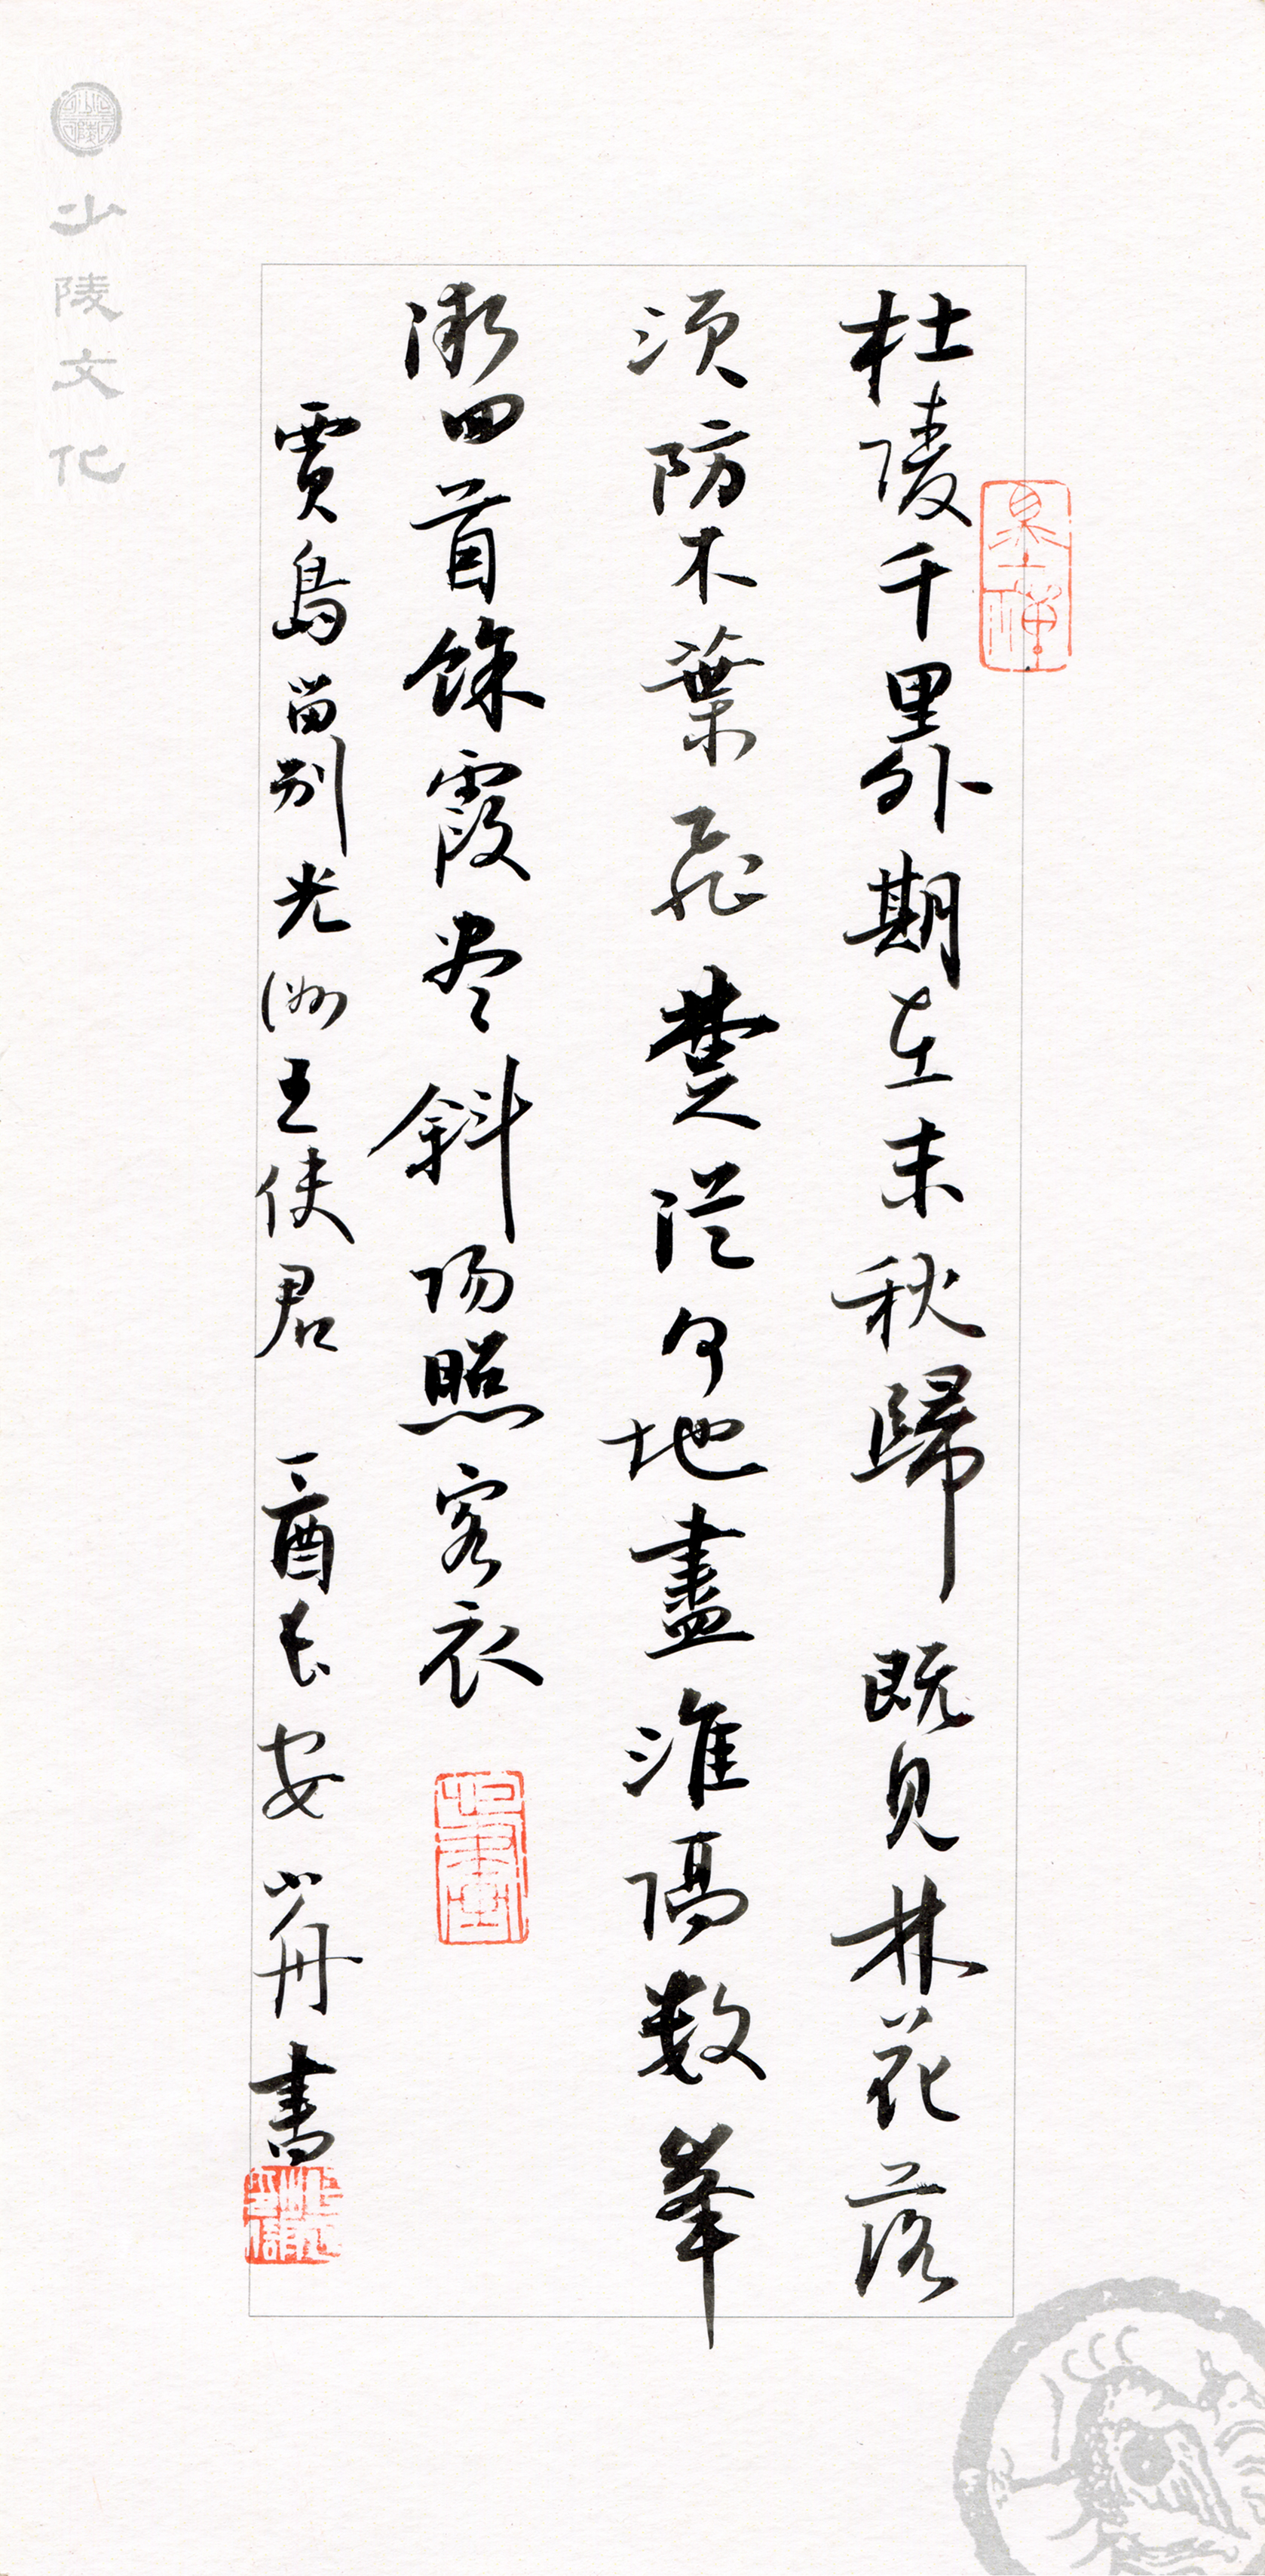 杜陵千里外期在末秋歸既見林花落
須防木葉飛楚從何地盡淮隔数峯
微回首餘霞尽斜陽照客衣
賈島留別光州王使君 辛酉長安 书
少陵文化